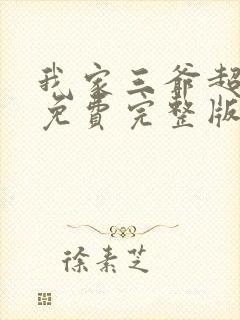 我家三爷超
免费完整版
徐素芝